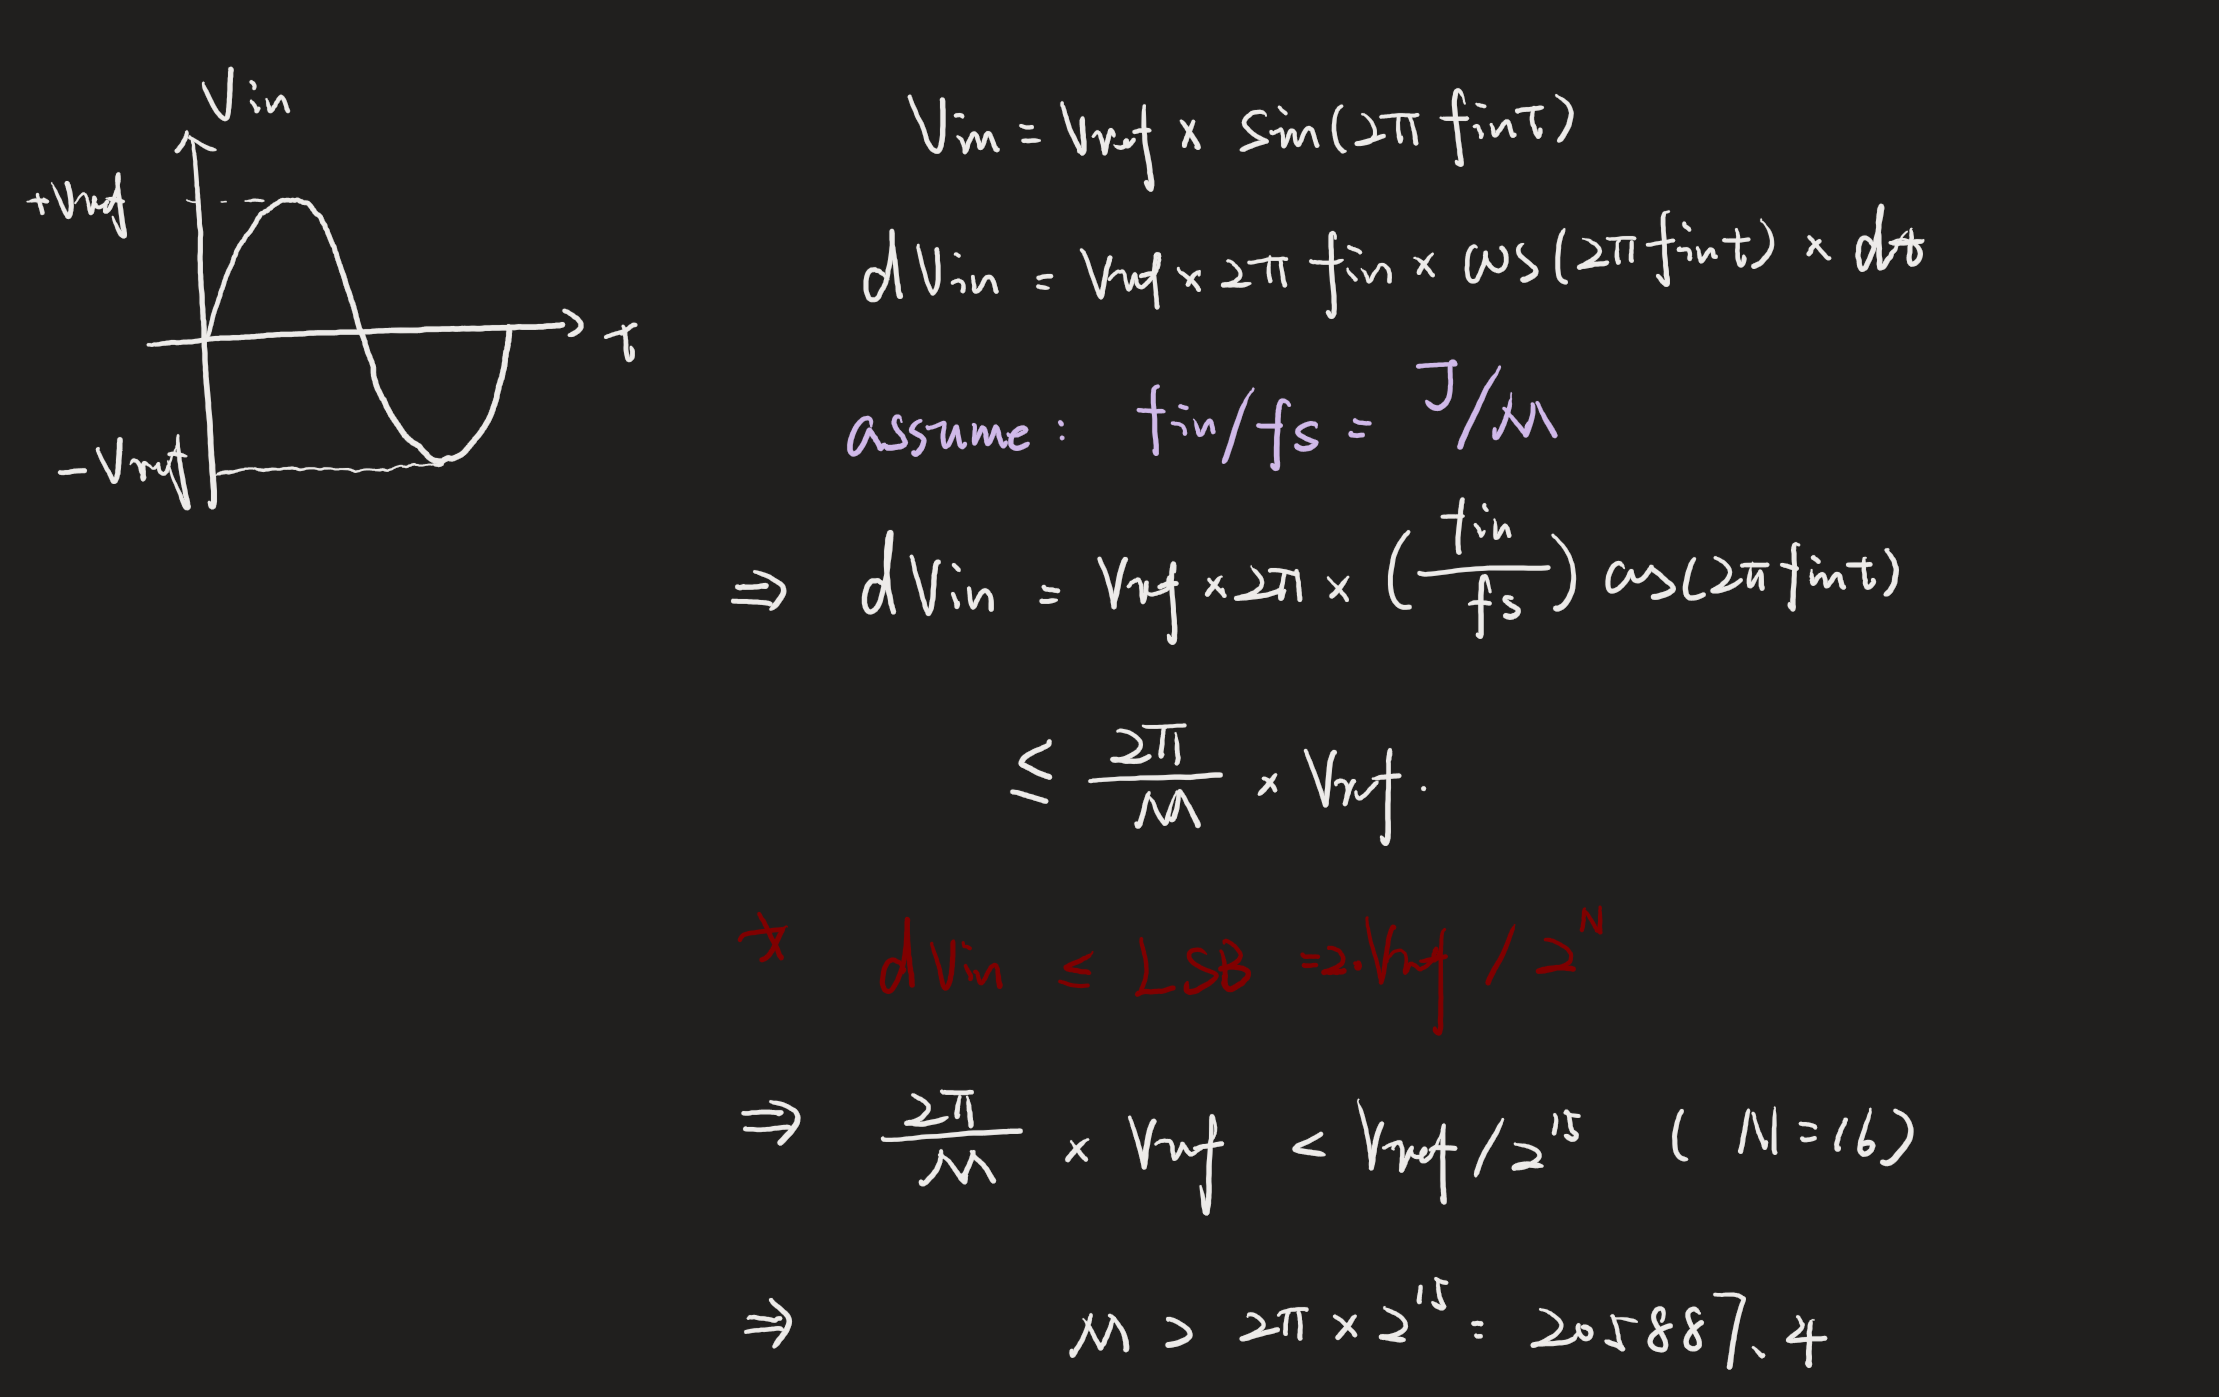 Vin
+Vref
-Vref
t
Vin = Vref × sin(2π fint)
dVin = Vref × 2π fin × cos(2π fint) × dt
assume: fin/fs = J/M
⇒ dVin = Vref × 2π × (fin/fs) cos(2π fint)
≤ 2π/M × Vref.
* dVin ≤ LSB = 2·Vref / 2^N
⇒ 2π/M × Vref < Vref / 2^15 ( N=16)
⇒ M > 2π × 2^15 = 205887.4